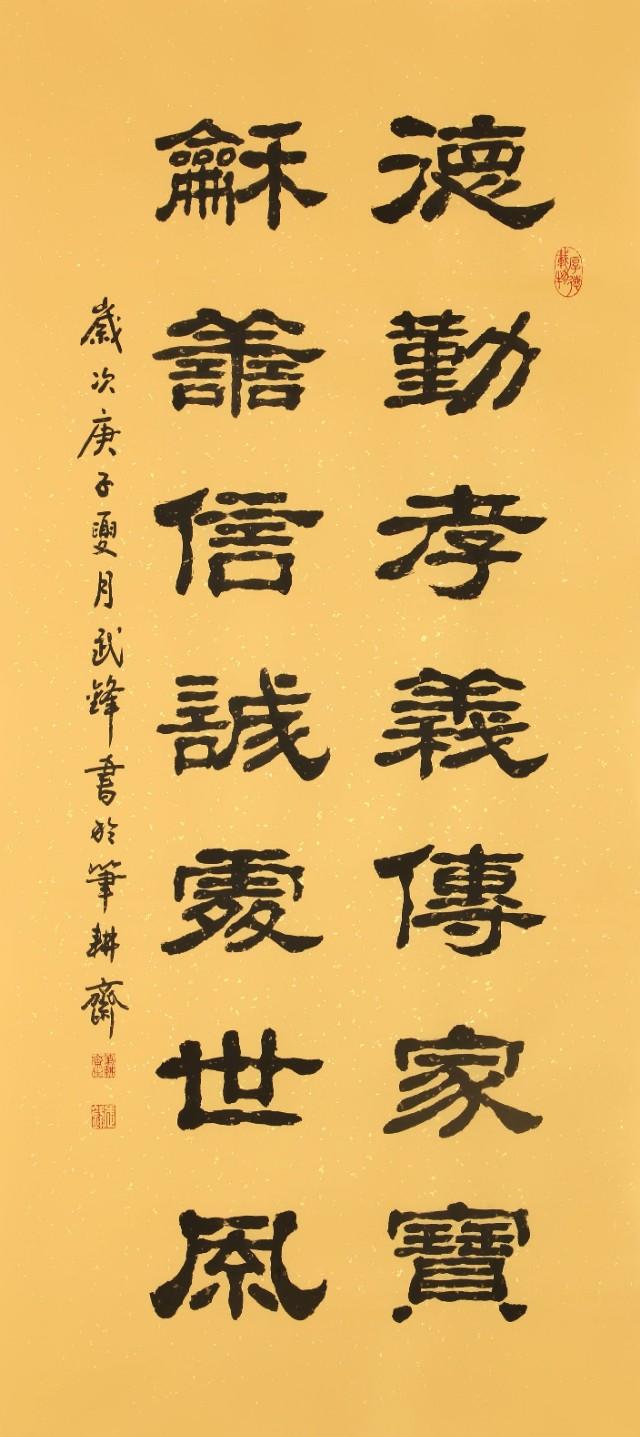 德勤孝義傳家寶
龢善信誠處世風
歲次庚子夏月武鋒書於筆耕齋
厚德載物